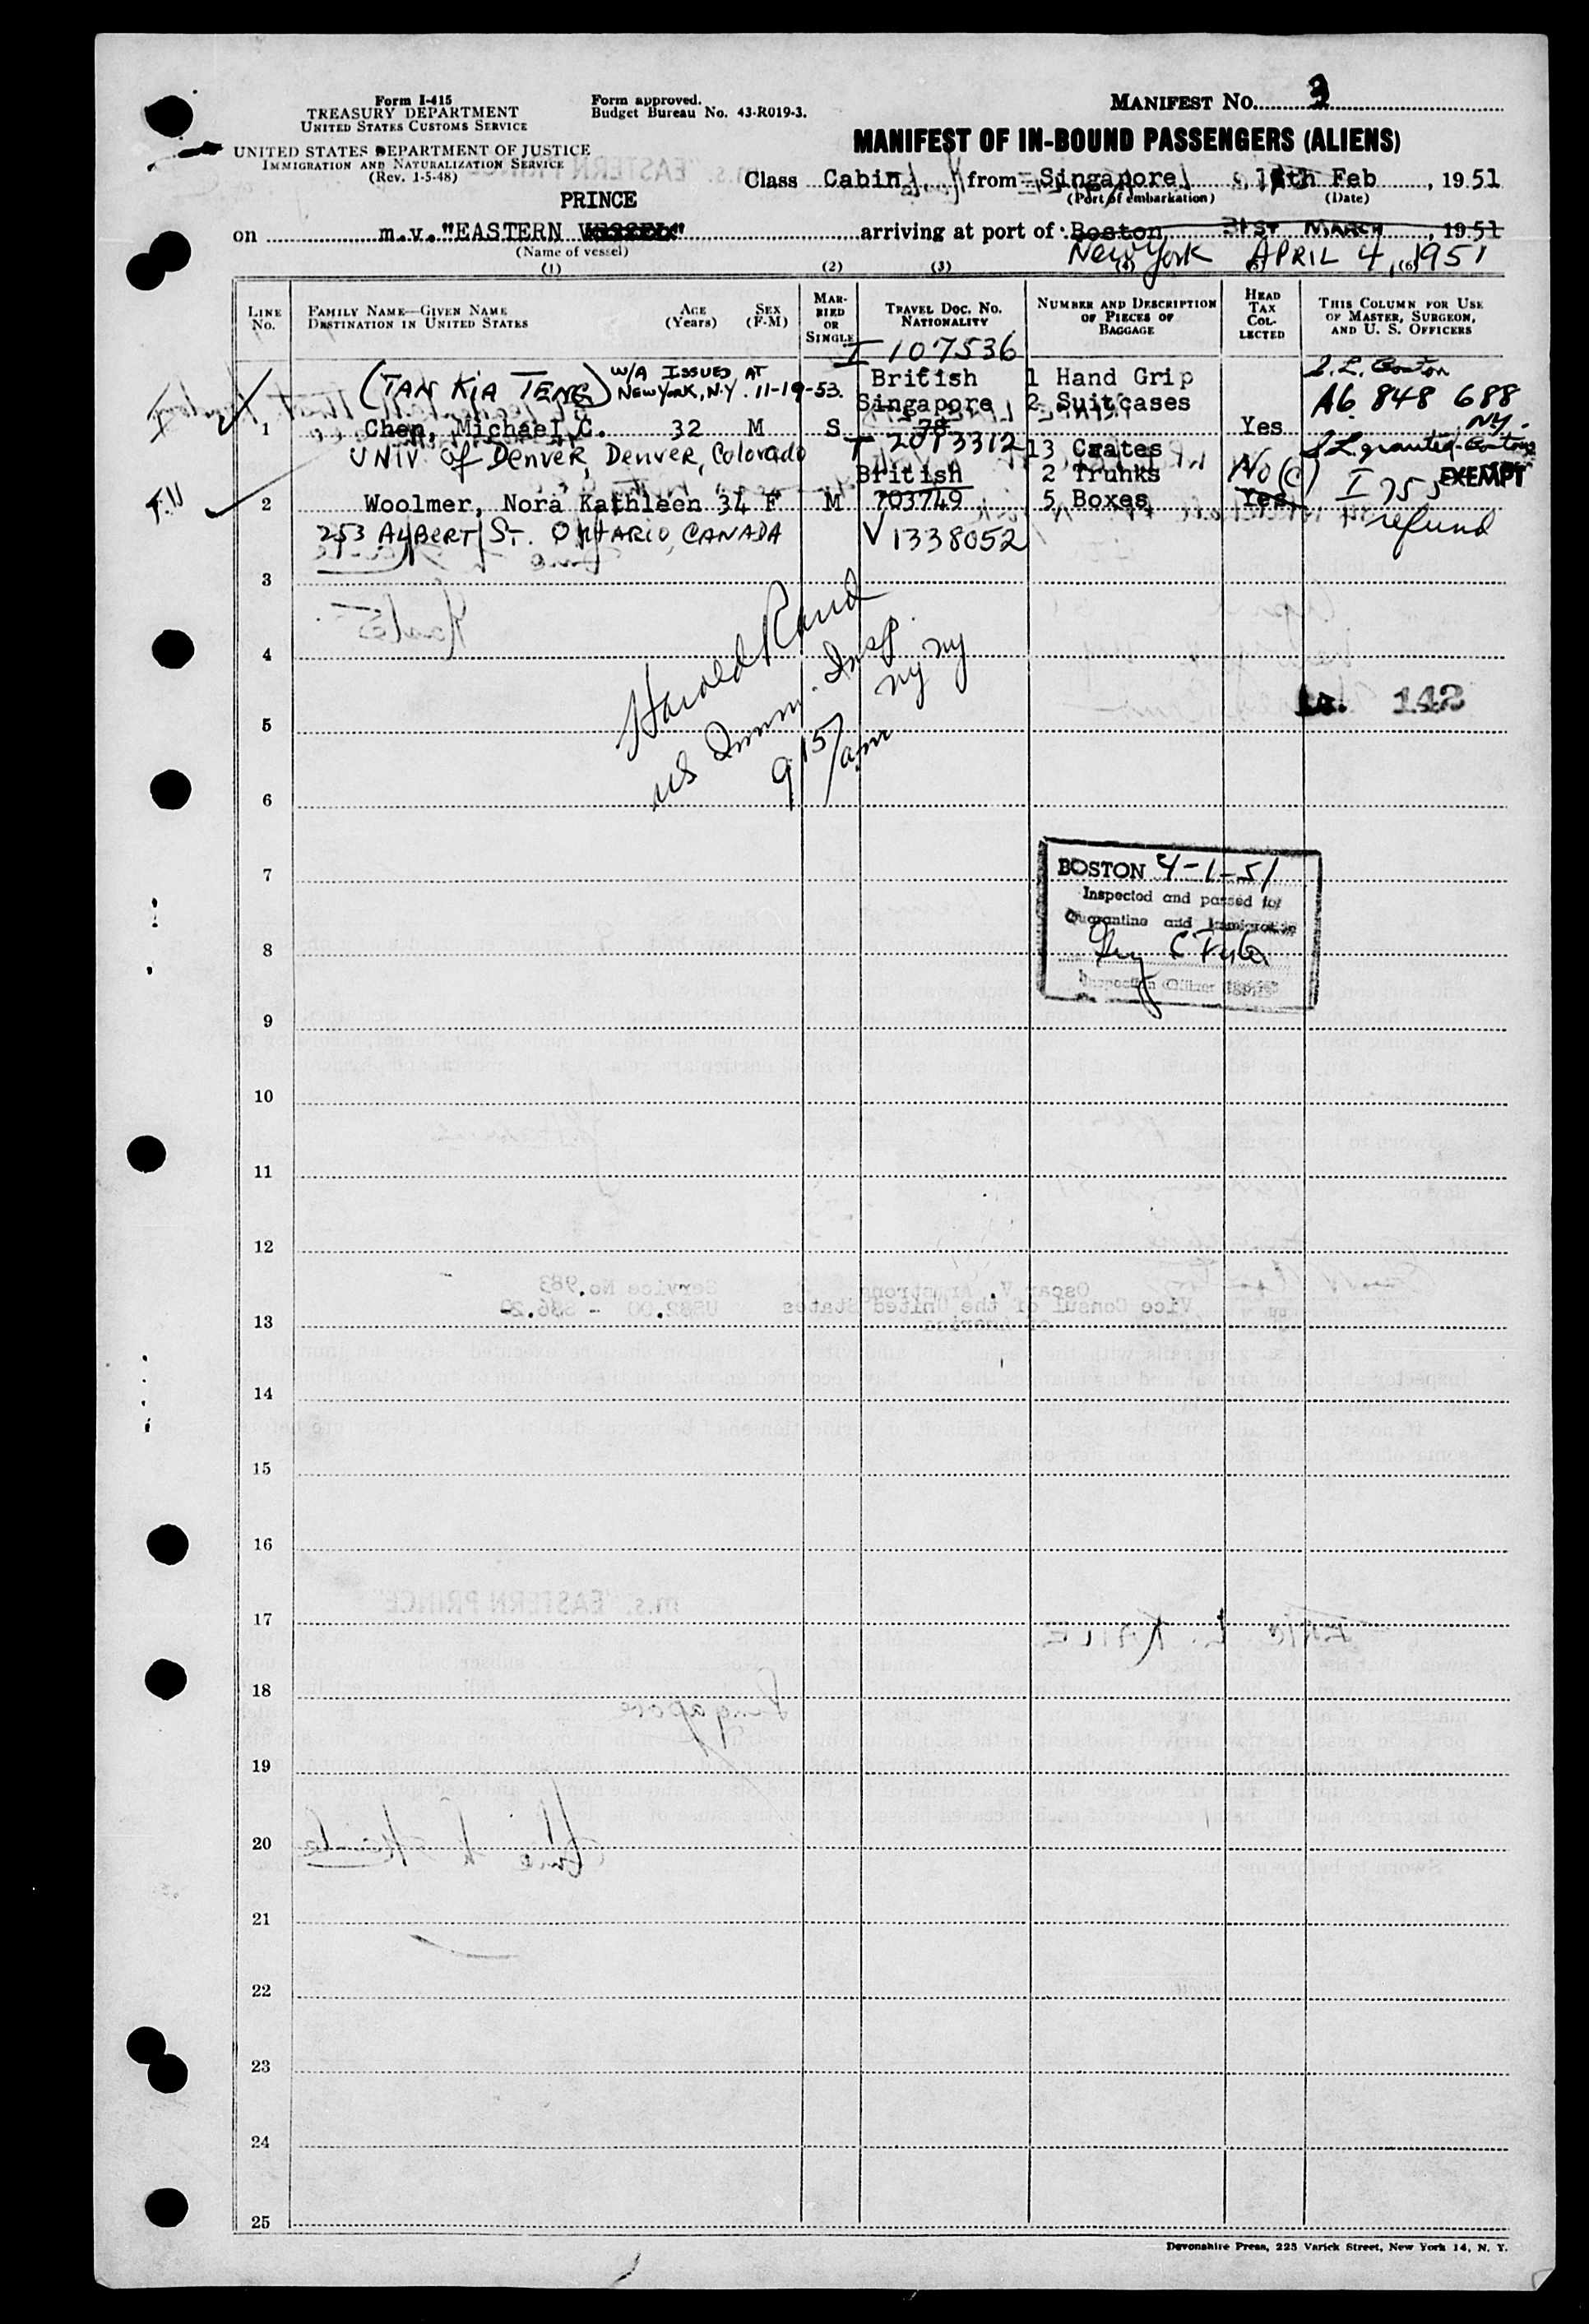 Form I-415
TREASURY DEPARTMENT
UNITED STATES CUSTOMS SERVICE
UNITED STATES DEPARTMENT OF JUSTICE
IMMIGRATION AND NATURALIZATION SERVICE
(Rev. 1-5-48)
Form approved.
Budget Bureau No. 43-R019-3.
MANIFEST NO. 3
MANIFEST OF IN-BOUND PASSENGERS (ALIENS)
Class Cabin from Singapore, th Feb, 1951
(Port of embarkation) (Date)
PRINCE
on m.v. "EASTERN VESSEL" arriving at port of Boston 31ST MARCH, 1951
(Name of vessel)
New York APRIL 4, 1951
(1) (2) (3) (4) (5) (6)
LINE No.
FAMILY NAME—GIVEN NAME
DESTINATION IN UNITED STATES
AGE (Years)
SEX (F-M)
MARRIED OR SINGLE
TRAVEL DOC. NO. NATIONALITY
NUMBER AND DESCRIPTION OF PIECES OF BAGGAGE
HEAD TAX COLLECTED
THIS COLUMN FOR USE OF MASTER, SURGEON, AND U. S. OFFICERS
I 107536
(TAN KIA TENG) W/A ISSUED AT NEW YORK, N.Y. 11-19-53.
British 1 Hand Grip
Singapore 2 Suitcases A6 848 688
NY.
1 Chen, Michael C. 32 M S 78 Yes
UNIV. of Denver, Denver, Colorado
13 Crates
British 2 Trunks No (C) EXEMPT
2 Woolmer, Nora Kathleen 34 F M 703749 5 Boxes Yes refund
253 ALBERT ST. ONTARIO, CANADA V 1338052
3
4
Harold Rand
US Imm. Insp.
NY NY
9 15/am
142
5
6
7
BOSTON 4-1-51
Inspected and passed for
Quarantine and Immigration
Inspection Officer USPHS
8
9
10
11
12
13
14
15
16
17
18
19
20
21
22
23
24
25
Devonshire Press, 225 Varick Street, New York 14, N. Y.